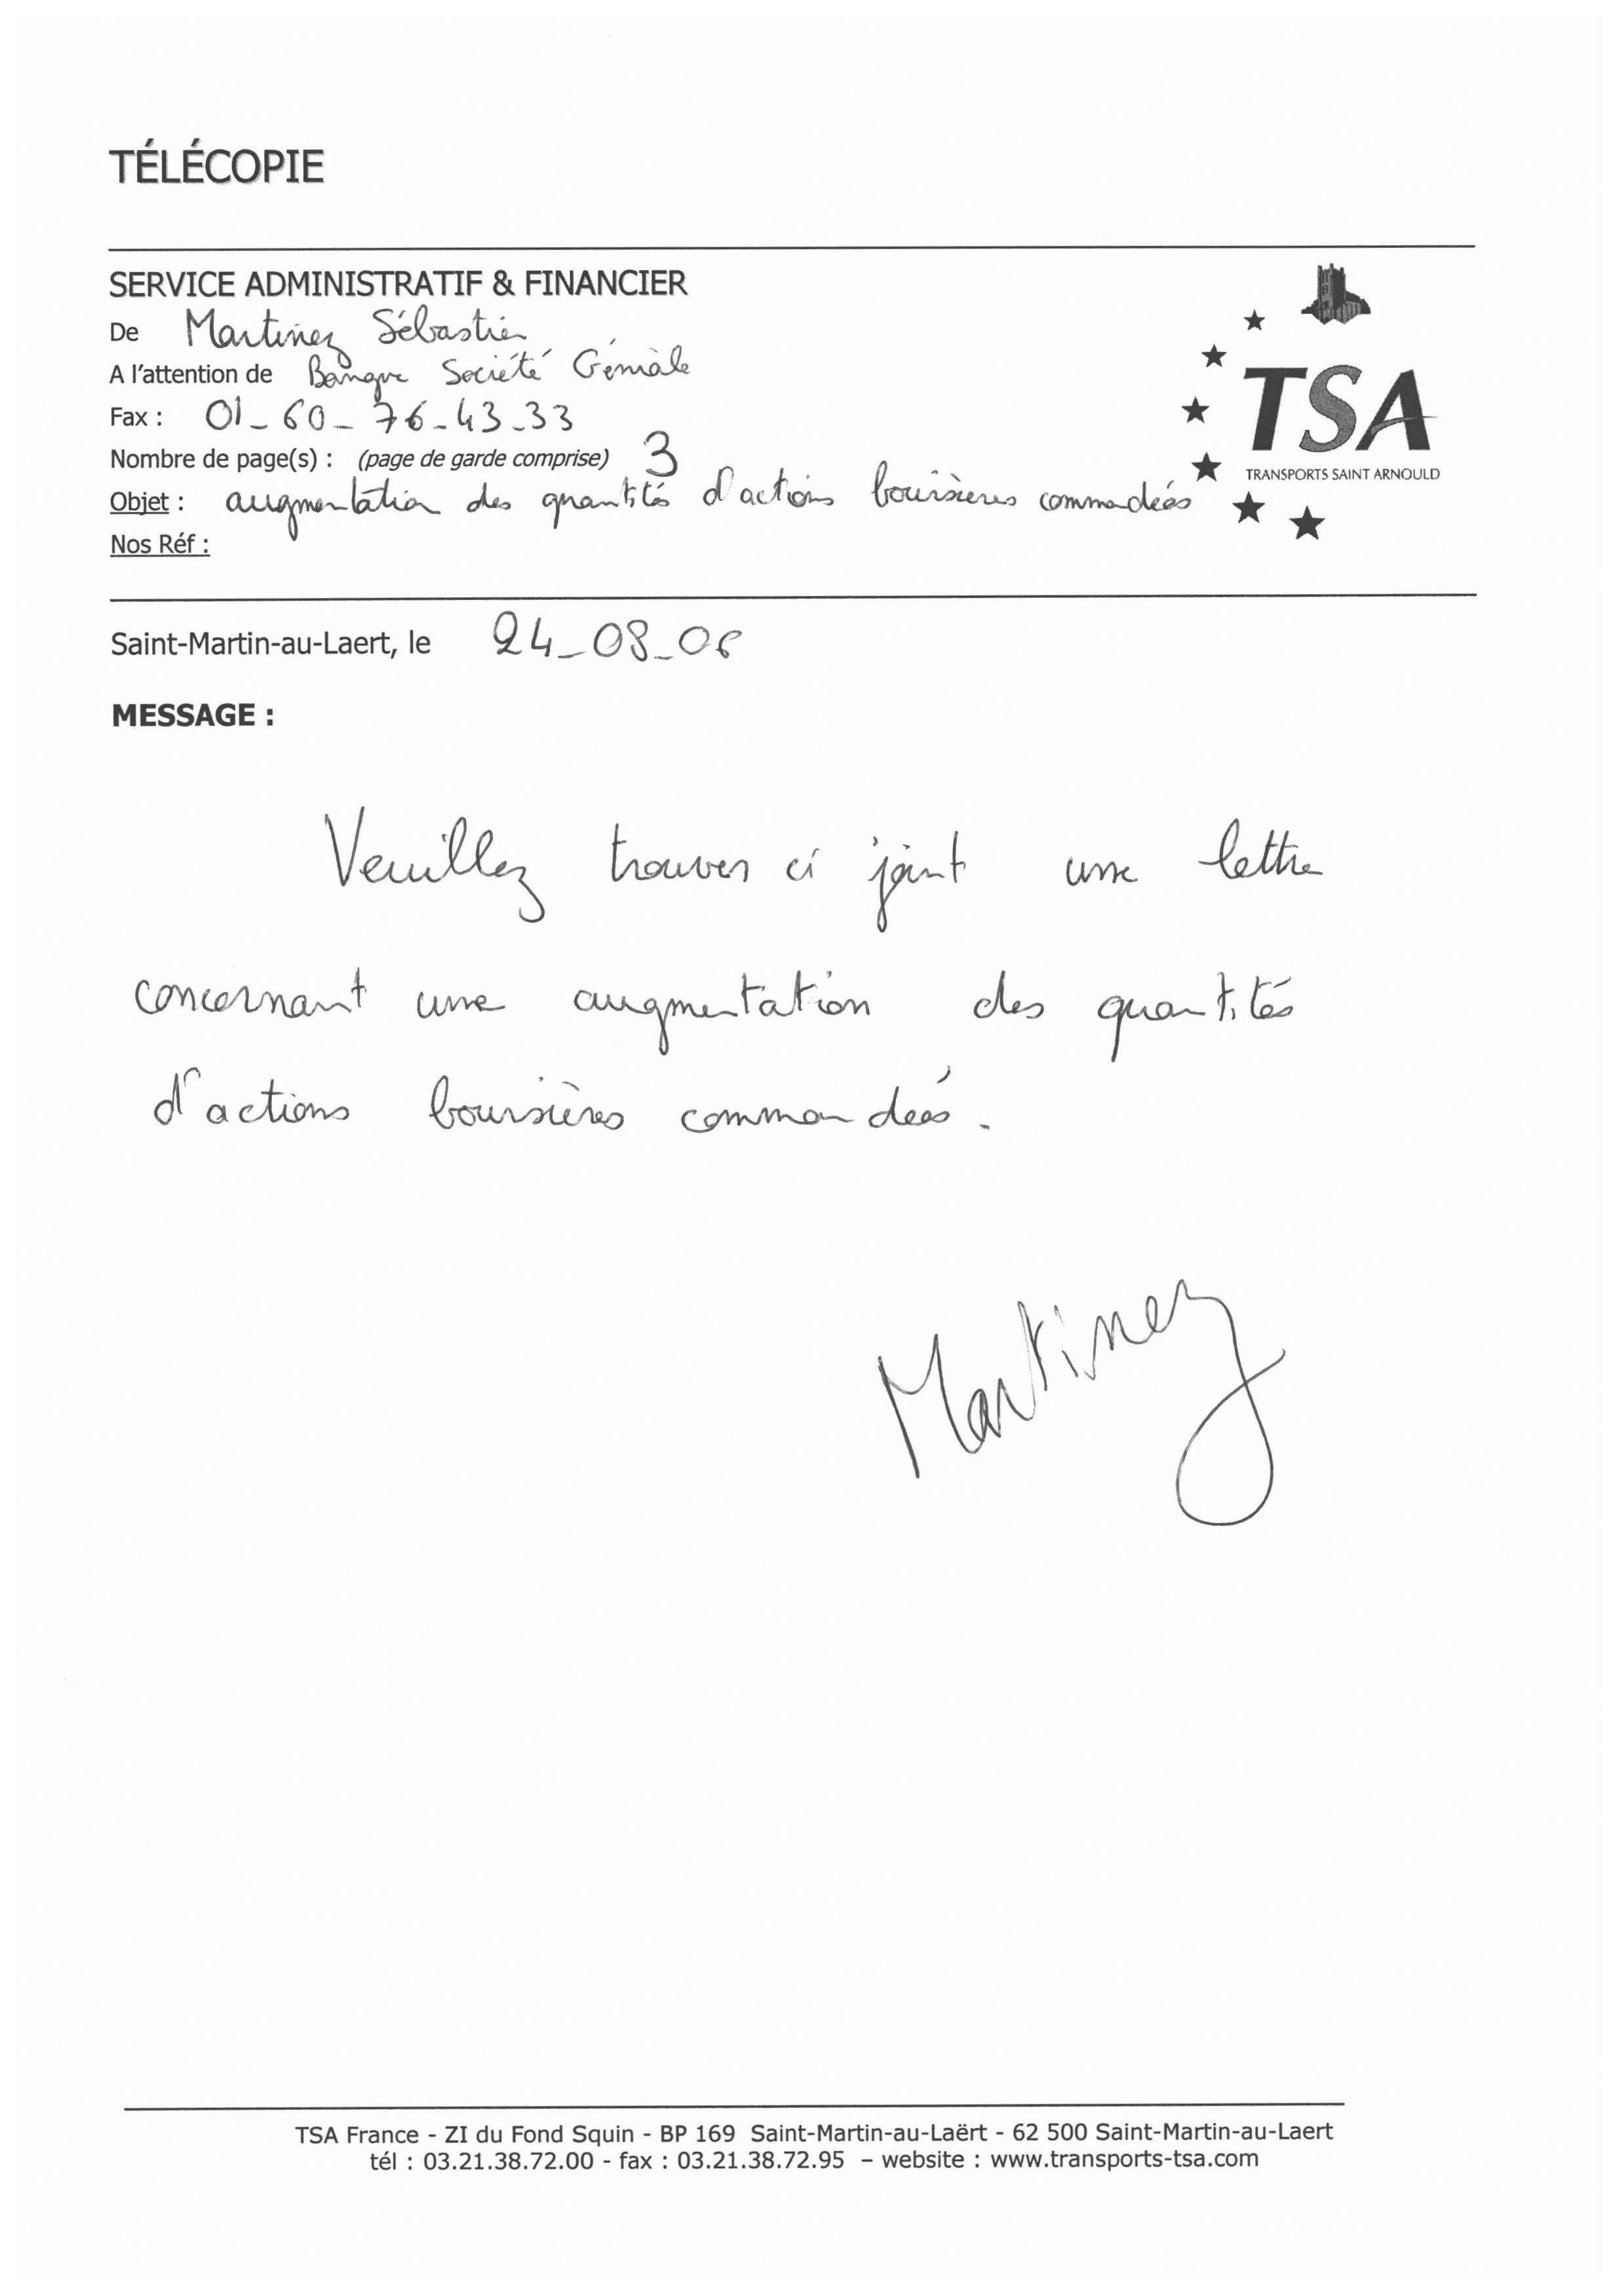 TÉLÉCOPIE
SERVICE ADMINISTRATIF & FINANCIER
De Martinez Sébastien
A l'attention de Banque Société Géniale
Fax : 01_60_76_43_33
Nombre de page(s) : (page de garde comprise) 3
Objet : augmentation des quantités d'actions boursières commandées
Nos Réf :
TSA
TRANSPORTS SAINT ARNOULD
Saint-Martin-au-Laert, le 24_08_06
MESSAGE :
Veuillez trouver ci joint une lettre
concernant une augmentation des quantités
d'actions boursières commandées.
Martinez
TSA France - ZI du Fond Squin - BP 169 Saint-Martin-au-Laërt - 62 500 Saint-Martin-au-Laert
tél : 03.21.38.72.00 - fax : 03.21.38.72.95 – website : www.transports-tsa.com